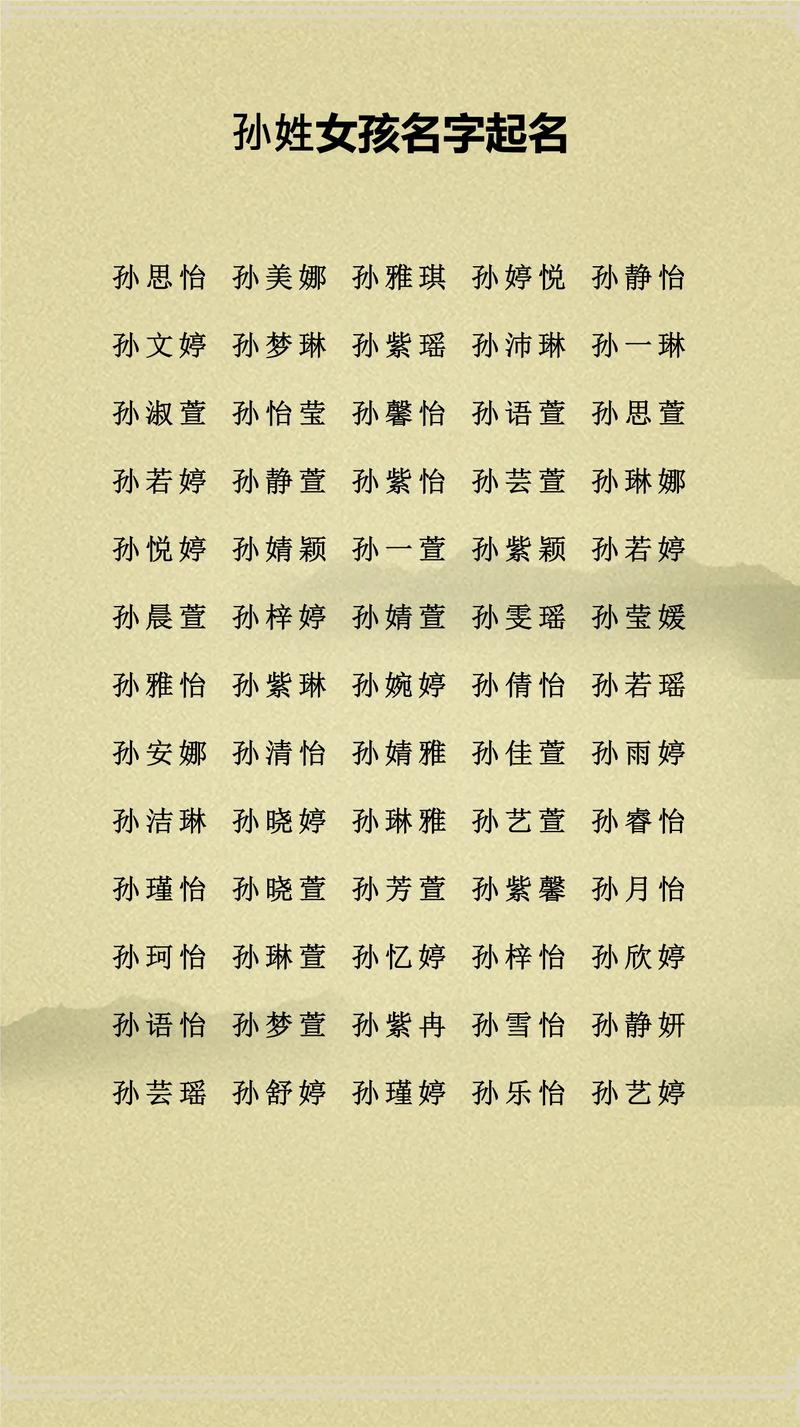 孙姓女孩名字起名
孙思怡 孙美娜 孙雅琪 孙婷悦 孙静怡
孙文婷 孙梦琳 孙紫瑶 孙沛琳 孙一琳
孙淑萱 孙怡莹 孙馨怡 孙语萱 孙思萱
孙若婷 孙静萱 孙紫怡 孙芸萱 孙琳娜
孙悦婷 孙婧颖 孙一萱 孙紫颖 孙若婷
孙晨萱 孙梓婷 孙婧萱 孙雯瑶 孙莹媛
孙雅怡 孙紫琳 孙婉婷 孙倩怡 孙若瑶
孙安娜 孙清怡 孙婧雅 孙佳萱 孙雨婷
孙洁琳 孙晓婷 孙琳雅 孙艺萱 孙睿怡
孙瑾怡 孙晓萱 孙芳萱 孙紫馨 孙月怡
孙珂怡 孙琳萱 孙忆婷 孙梓怡 孙欣婷
孙语怡 孙梦萱 孙紫冉 孙雪怡 孙静妍
孙芸瑶 孙舒婷 孙瑾婷 孙乐怡 孙艺婷